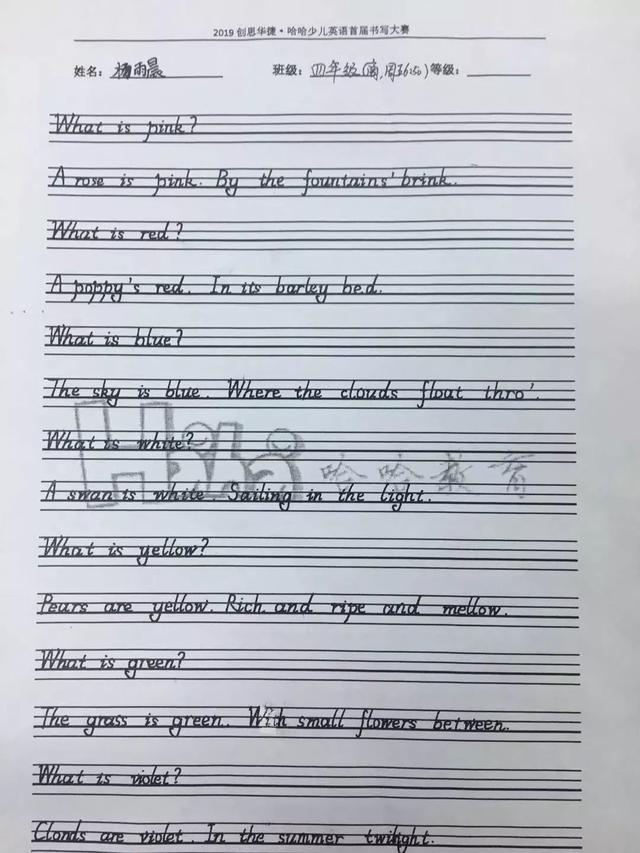 2019 创思华捷·哈哈少儿英语首届书写大赛
姓名：杨雨晨 班级：四年级(南,周六16:50) 等级：
What is pink?
A rose is pink. By the fountains' brink.
What is red?
A poppy's red. In its barley bed.
What is blue?
The sky is blue. Where the clouds float thro'.
What is white?
哈哈教育
A swan is white. Sailing in the light.
What is yellow?
Pears are yellow. Rich and ripe and mellow.
What is green?
The grass is green. With small flowers between.
What is violet?
Clonds are violet. In the summer twilight.